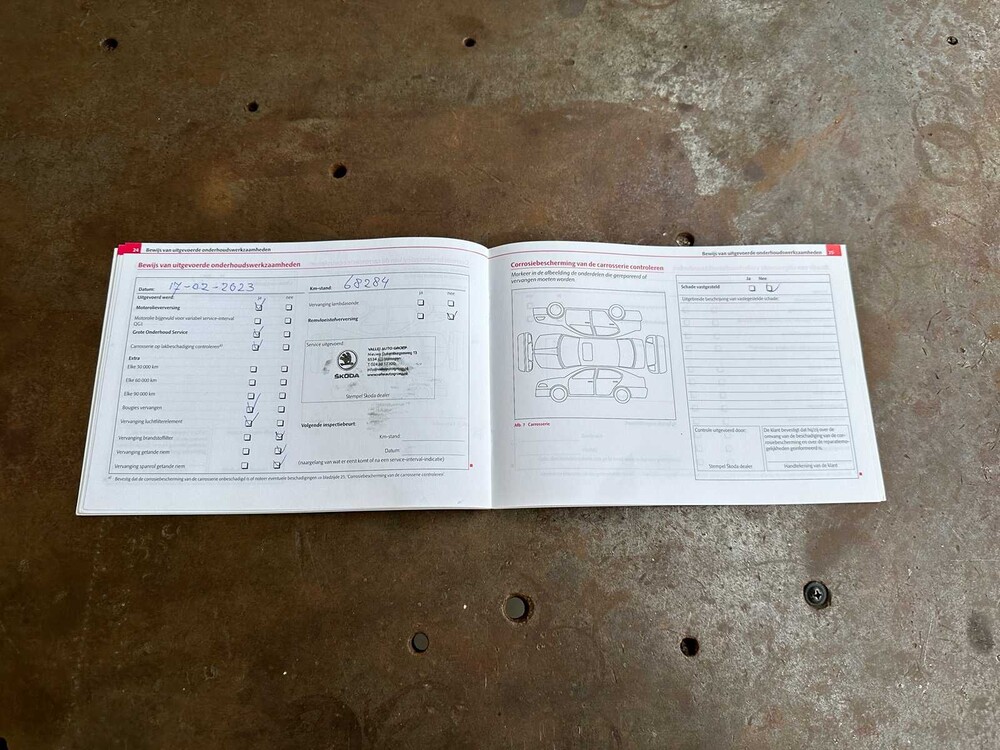 24 Bewijs van uitgevoerde onderhoudswerkzaamheden
Bewijs van uitgevoerde onderhoudswerkzaamheden
Datum: 17-02-2023
Km-stand 68284
Uitgevoerd werd: Ja Nee
Motorolieverversing
Motorolie bijgevuld voor variabel service-interval
QG2
Grote Onderhoud Service
Carrosserie op lakbeschadiging controleren
Extra
Elke 30 000 km
Elke 60 000 km
Elke 90 000 km
Bougies vervangen
Vervanging luchtfilterelement
Vervanging brandstoffilter
Vervanging getande riem
Vervanging spanrol getande riem
Ja Nee
Vervanging lambdasonde
Remvloeistofverversing
Service uitgevoerd:
ŠKODA
VALLEI AUTO GROEP
Stempel Škoda dealer
Volgende inspectiebeurt:
Km-stand
Datum:
(naargelang van wat er eerst komt of na een service-interval-indicatie)
Bevestig dat de corrosiebescherming van de carrosserie onbeschadigd is of noteer eventuele beschadigingen in bladzijde 25 "Corrosiebescherming van de carrosserie controleren"
Bewijs van uitgevoerde onderhoudswerkzaamheden 25
Corrosiebescherming van de carrosserie controleren
Markeer in de afbeelding de onderdelen die gerepareerd of
vervangen moeten worden.
Afb. 7 Carrosserie
Ja Nee
Schade vastgesteld
Uitgebreide beschrijving van vastgestelde schade:
Controle uitgevoerd door:
Stempel Škoda dealer
De klant bevestigt dat hij/zij over de
omvang van de beschadiging van de cor-
rosiebescherming en over de reparatiemo-
gelijkheden geïnformeerd is.
Handtekening van de klant